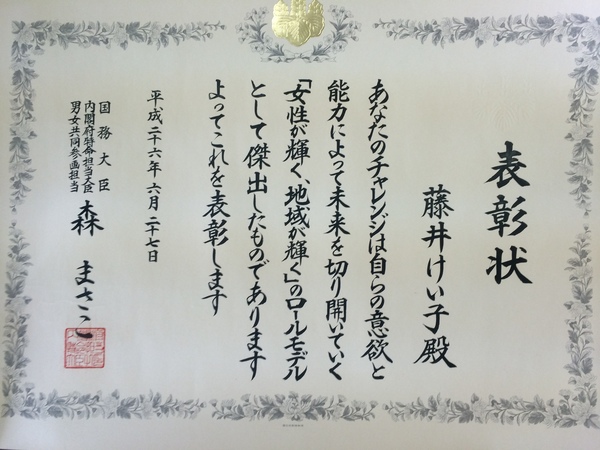 表彰状
藤井けい子殿
あなたのチャレンジは自らの意欲と
能力によって未来を切り開いていく
「女性が輝く、地域が輝く」のロールモデル
として傑出したものであります
よってこれを表彰します
平成二十六年六月二十七日
国務大臣
内閣府特命担当大臣
男女共同参画担当
森まさこ